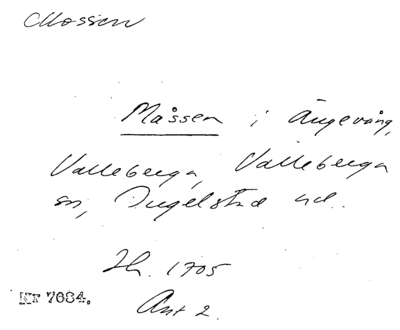 Mossen
Måssen i Ängevång,
Valleberga, Valleberga
sn, Ingelstad hd.
Jh. 1705
Akt 2.
KT 7684.